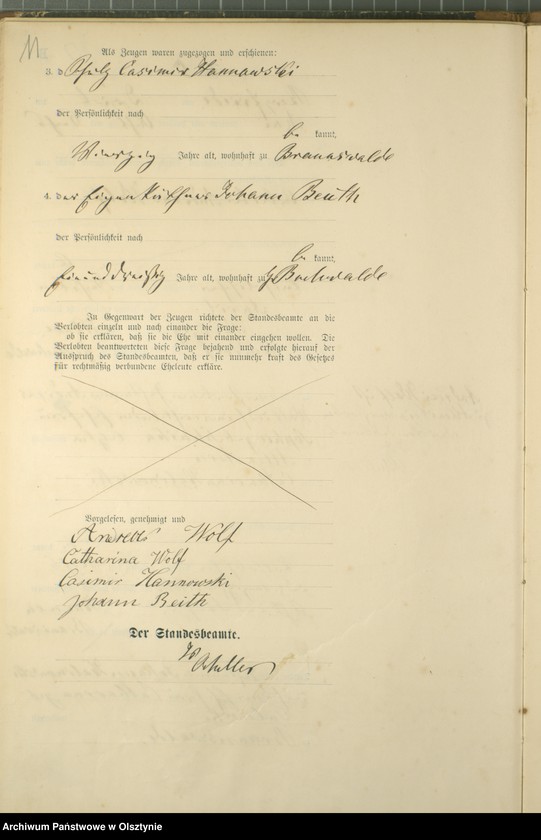 11
Als Zeugen waren zugezogen und erschienen:
3. d Casimir Hannowski
der Persönlichkeit nach
be kannt,
Vierzig Jahre alt, wohnhaft zu Braunswalde
4. der Eigenkäthner Johann Beuth
der Persönlichkeit nach
be kannt,
Einunddreißig Jahre alt, wohnhaft zu
In Gegenwart der Zeugen richtete der Standesbeamte an die
Verlobten einzeln und nach einander die Frage:
ob sie erklären, daß sie die Ehe mit einander eingehen wollen. Die
Verlobten beantworteten diese Frage bejahend und erfolgte hierauf der
Ausspruch des Standesbeamten, daß er sie nunmehr kraft des Gesetzes
für rechtmäßig verbundene Eheleute erkläre.
Vorgelesen, genehmigt und
Andreas Wolf
Catharina Wolf
Casimir Hannowski
Johann Beith
Der Standesbeamte.
Archiwum Państwowe w Olsztynie